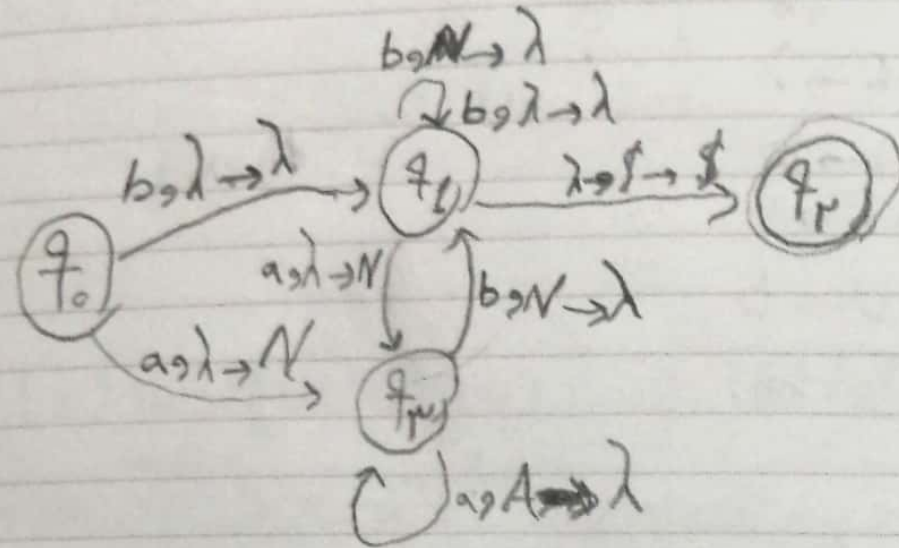 b,N→λ
b,λ→λ
b,λ→λ
q₁
λ→$→$
q۲
q₀
a,λ→N
b,N→λ
a,λ→N
q۳
a,A→λ